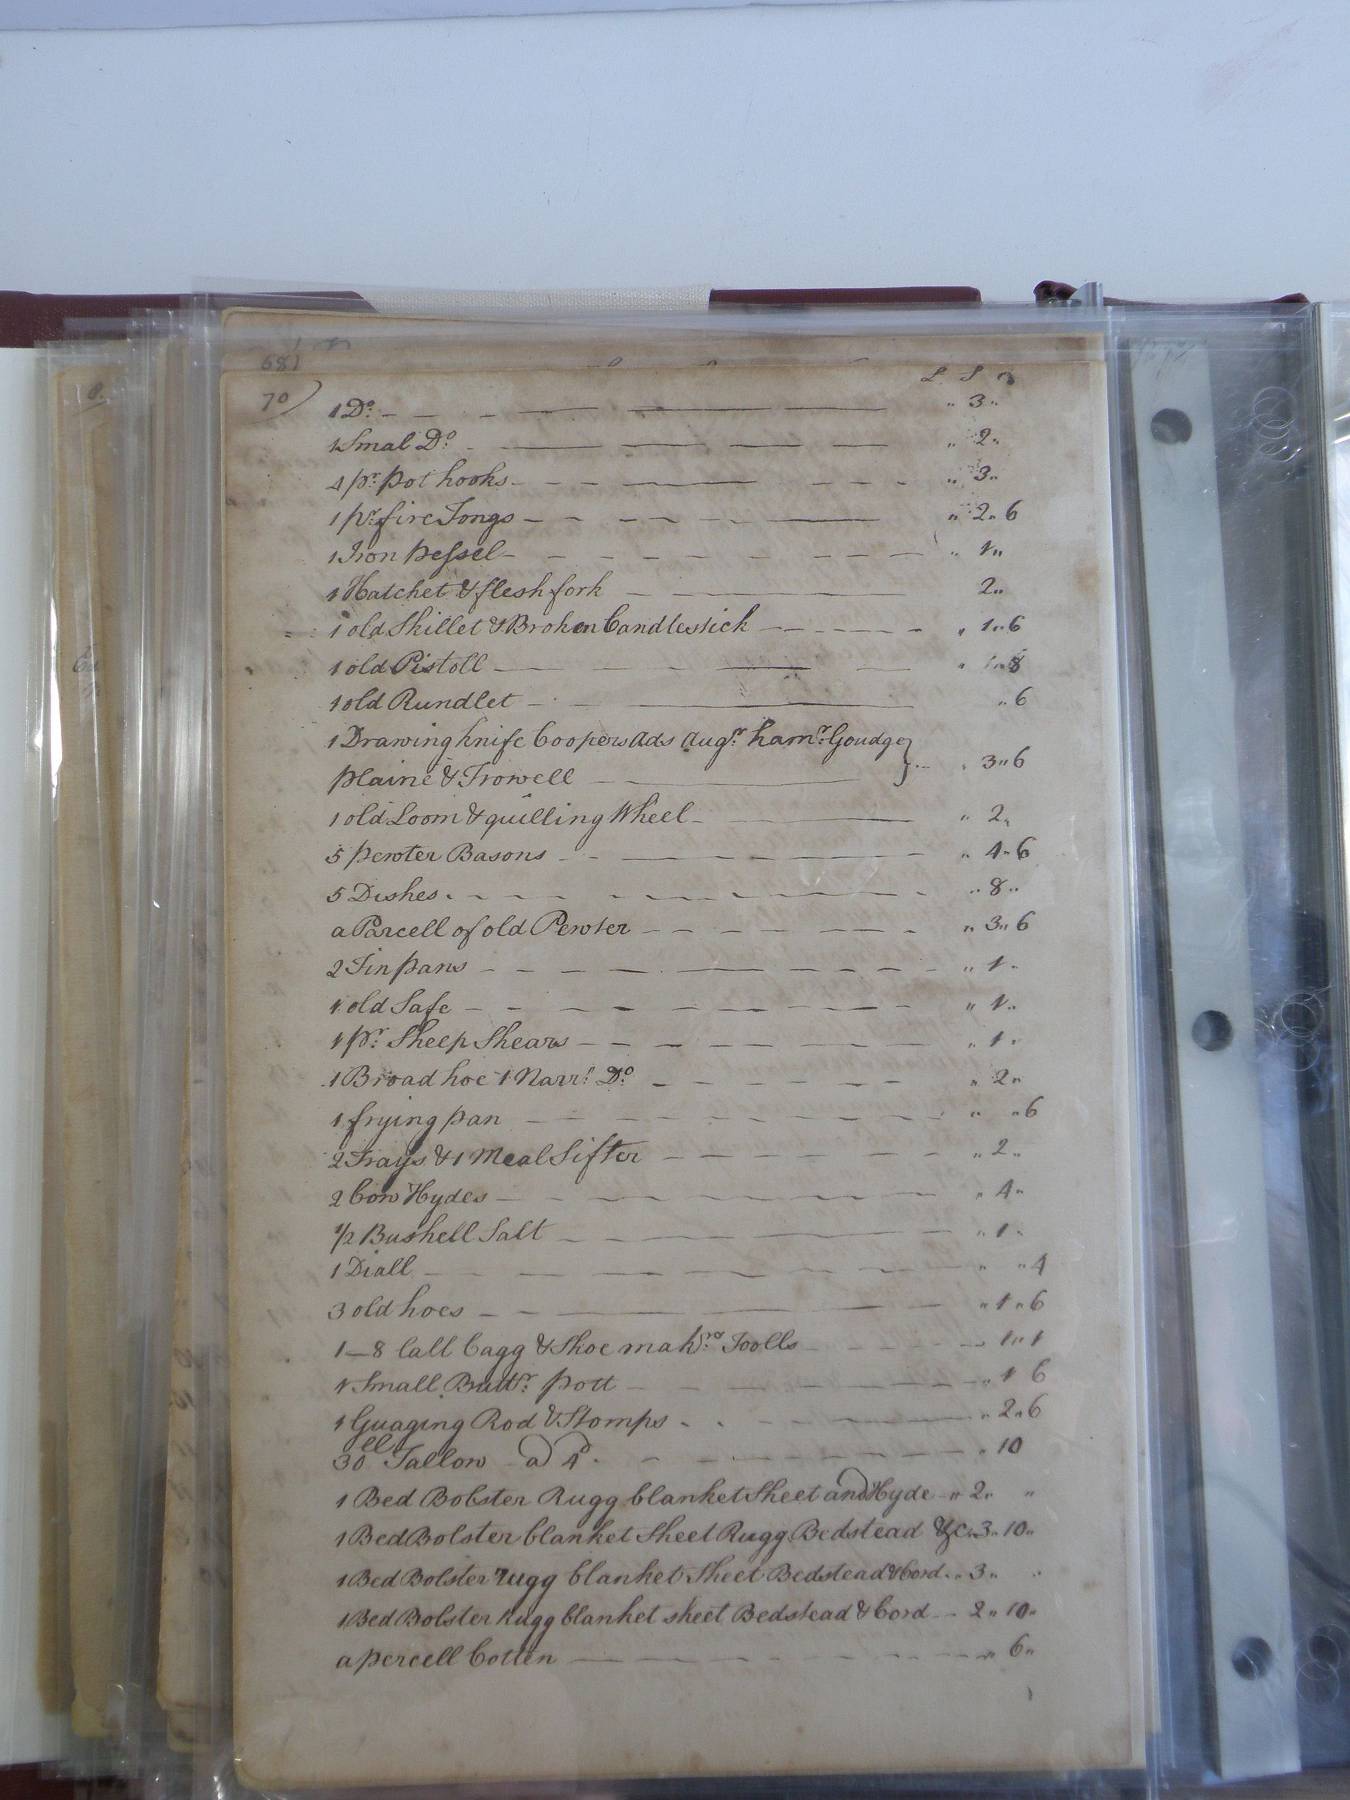 681
L S D
70) 1 Do. " 3 "
1 Smal Do " 2 "
4 pr. pot hooks " 3 "
1 pr fire Tongs " 2 " 6
1 Iron pessel " 1 "
1 Hatchet & flesh fork 2 "
1 old Skillet & Broken Candlestick " 1 " 6
1 old Pistoll " 1 " 8
1 old Rundlet " 6
1 Drawing knife Coopers Ads Augr. hamr. Goudge }
plaine & Trowell } " 3 " 6
1 old Loom & quilling Wheel " 2 "
5 pewter Basons " 4 " 6
5 Dishes " 8 "
a Parcell of old Pewter " 3 " 6
2 Tin pans " 1 "
1 old Safe " 1 "
1 pr. Sheep Shears " 1 "
1 Broad hoe 1 Narr. Do " 2 "
1 frying pan " " 6
2 Trays & 1 Meal Sifter " 2 "
2 Cow Hydes " 4 "
1/2 Bushell Salt " 1 "
1 Diall " " 4
3 old hoes " 1 " 6
1–8 Call Cagg & Shoe makrs. Toolls 1 " 1
1 Small Buttr. pott " 1 6
1 Guaging Rod & Stomps " 2 " 6
30 ll Tallow a 4d. " 10
1 Bed Bolster Rugg blanket Sheet and Hyde " 2 " "
1 Bed Bolster blanket Sheet Rugg Bedstead &c. 3 " 10 "
1 Bed Bolster rugg blanket Sheet Bedstead & Cord " 3 " "
1 Bed Bolster Rugg blanket sheet Bedstead & Cord 2 " 10 "
a percell Cotten " 6 "